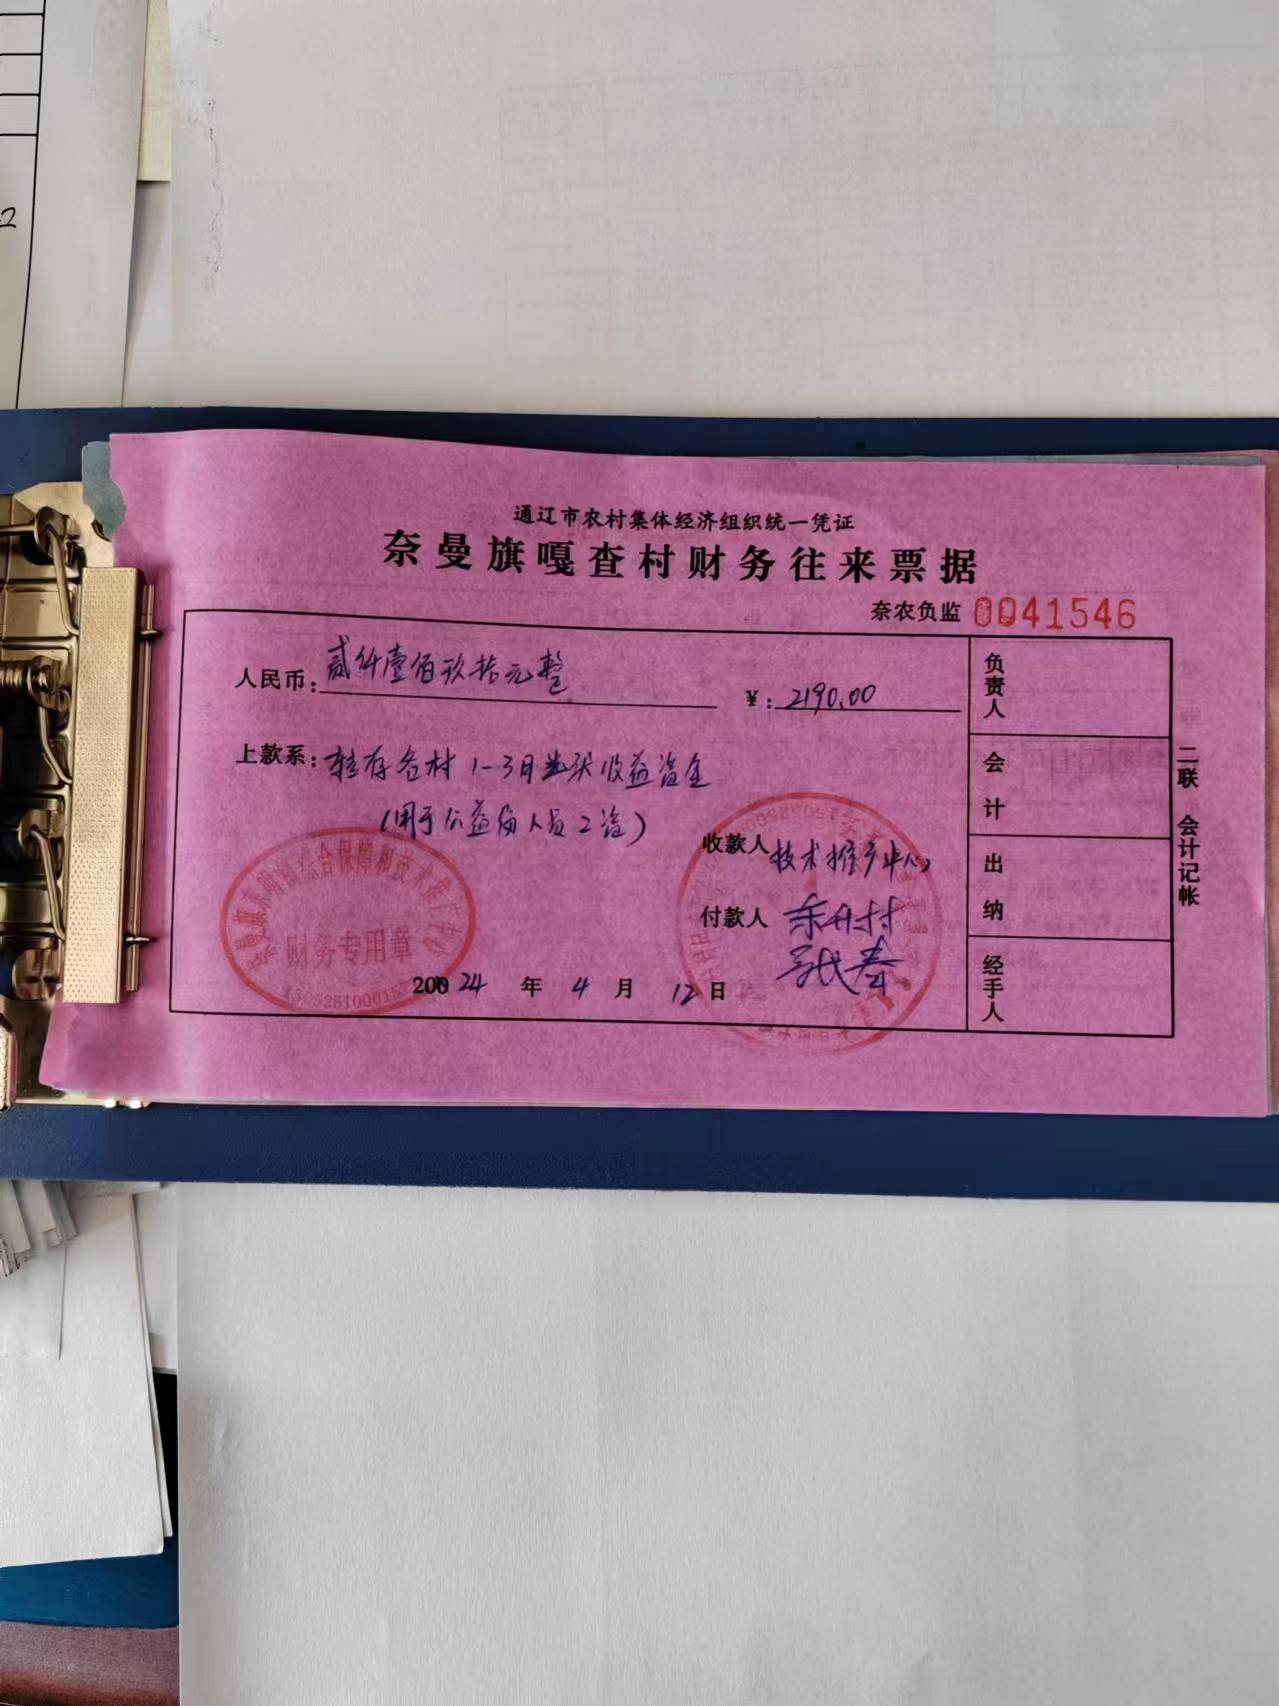 通辽市农村集体经济组织统一凭证
奈曼旗嘎查村财务往来票据
奈农负监 0041546
人民币: 贰仟壹佰玖拾元整 ¥: 2190.00
上款系: 转存各村1-3月光伏收益资金
(用于公益岗人员工资)
收款人 技术推广中心
付款人
张春
20024年4月12日
负责人
会计
出纳
经手人
二联 会计记帐
综合保障和技术推广中心
财务专用章